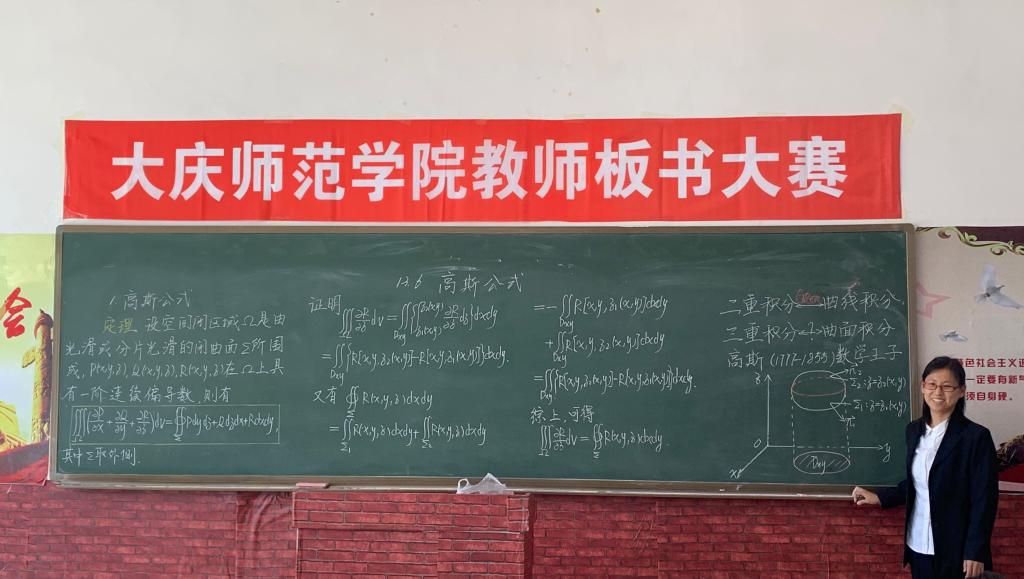 大庆师范学院教师板书大赛
12.6 高斯公式
1. 高斯公式
定理 设空间闭区域Ω是由
光滑或分片光滑的闭曲面Σ所围
成, P(x,y,z), Q(x,y,z), R(x,y,z)在Ω上具
有一阶连续偏导数, 则有
∭_Ω(∂P/∂x+∂Q/∂y+∂R/∂z)dv=∯_Σ Pdydz+Qdzdx+Rdxdy
其中Σ取外侧.
证明
∭_Ω ∂R/∂z dv=∬_Dxy{∫_{z₁(x,y)}^{z₂(x,y)} ∂R/∂z dz}dxdy
=∬_Dxy{R[x,y,z₂(x,y)]-R[x,y,z₁(x,y)]}dxdy.
又有 ∯_Σ R(x,y,z)dxdy
=∬_Σ₁ R(x,y,z)dxdy+∬_Σ₂ R(x,y,z)dxdy
=-∬_Dxy R[x,y,z₁(x,y)]dxdy
+∬_Dxy R[x,y,z₂(x,y)]dxdy
=∬_Dxy{R[x,y,z₂(x,y)]-R[x,y,z₁(x,y)]}dxdy.
综上,可得
∭_Ω ∂R/∂z dv=∯_Σ R(x,y,z)dxdy.
二重积分 曲线积分,
三重积分 曲面积分
高斯(1777-1855)数学王子
z
Σ₂:z=z₂(x,y)
Σ₁:z=z₁(x,y)
o
y
Dxy
x
会
色社会主义
一定要有新
须自身硬。